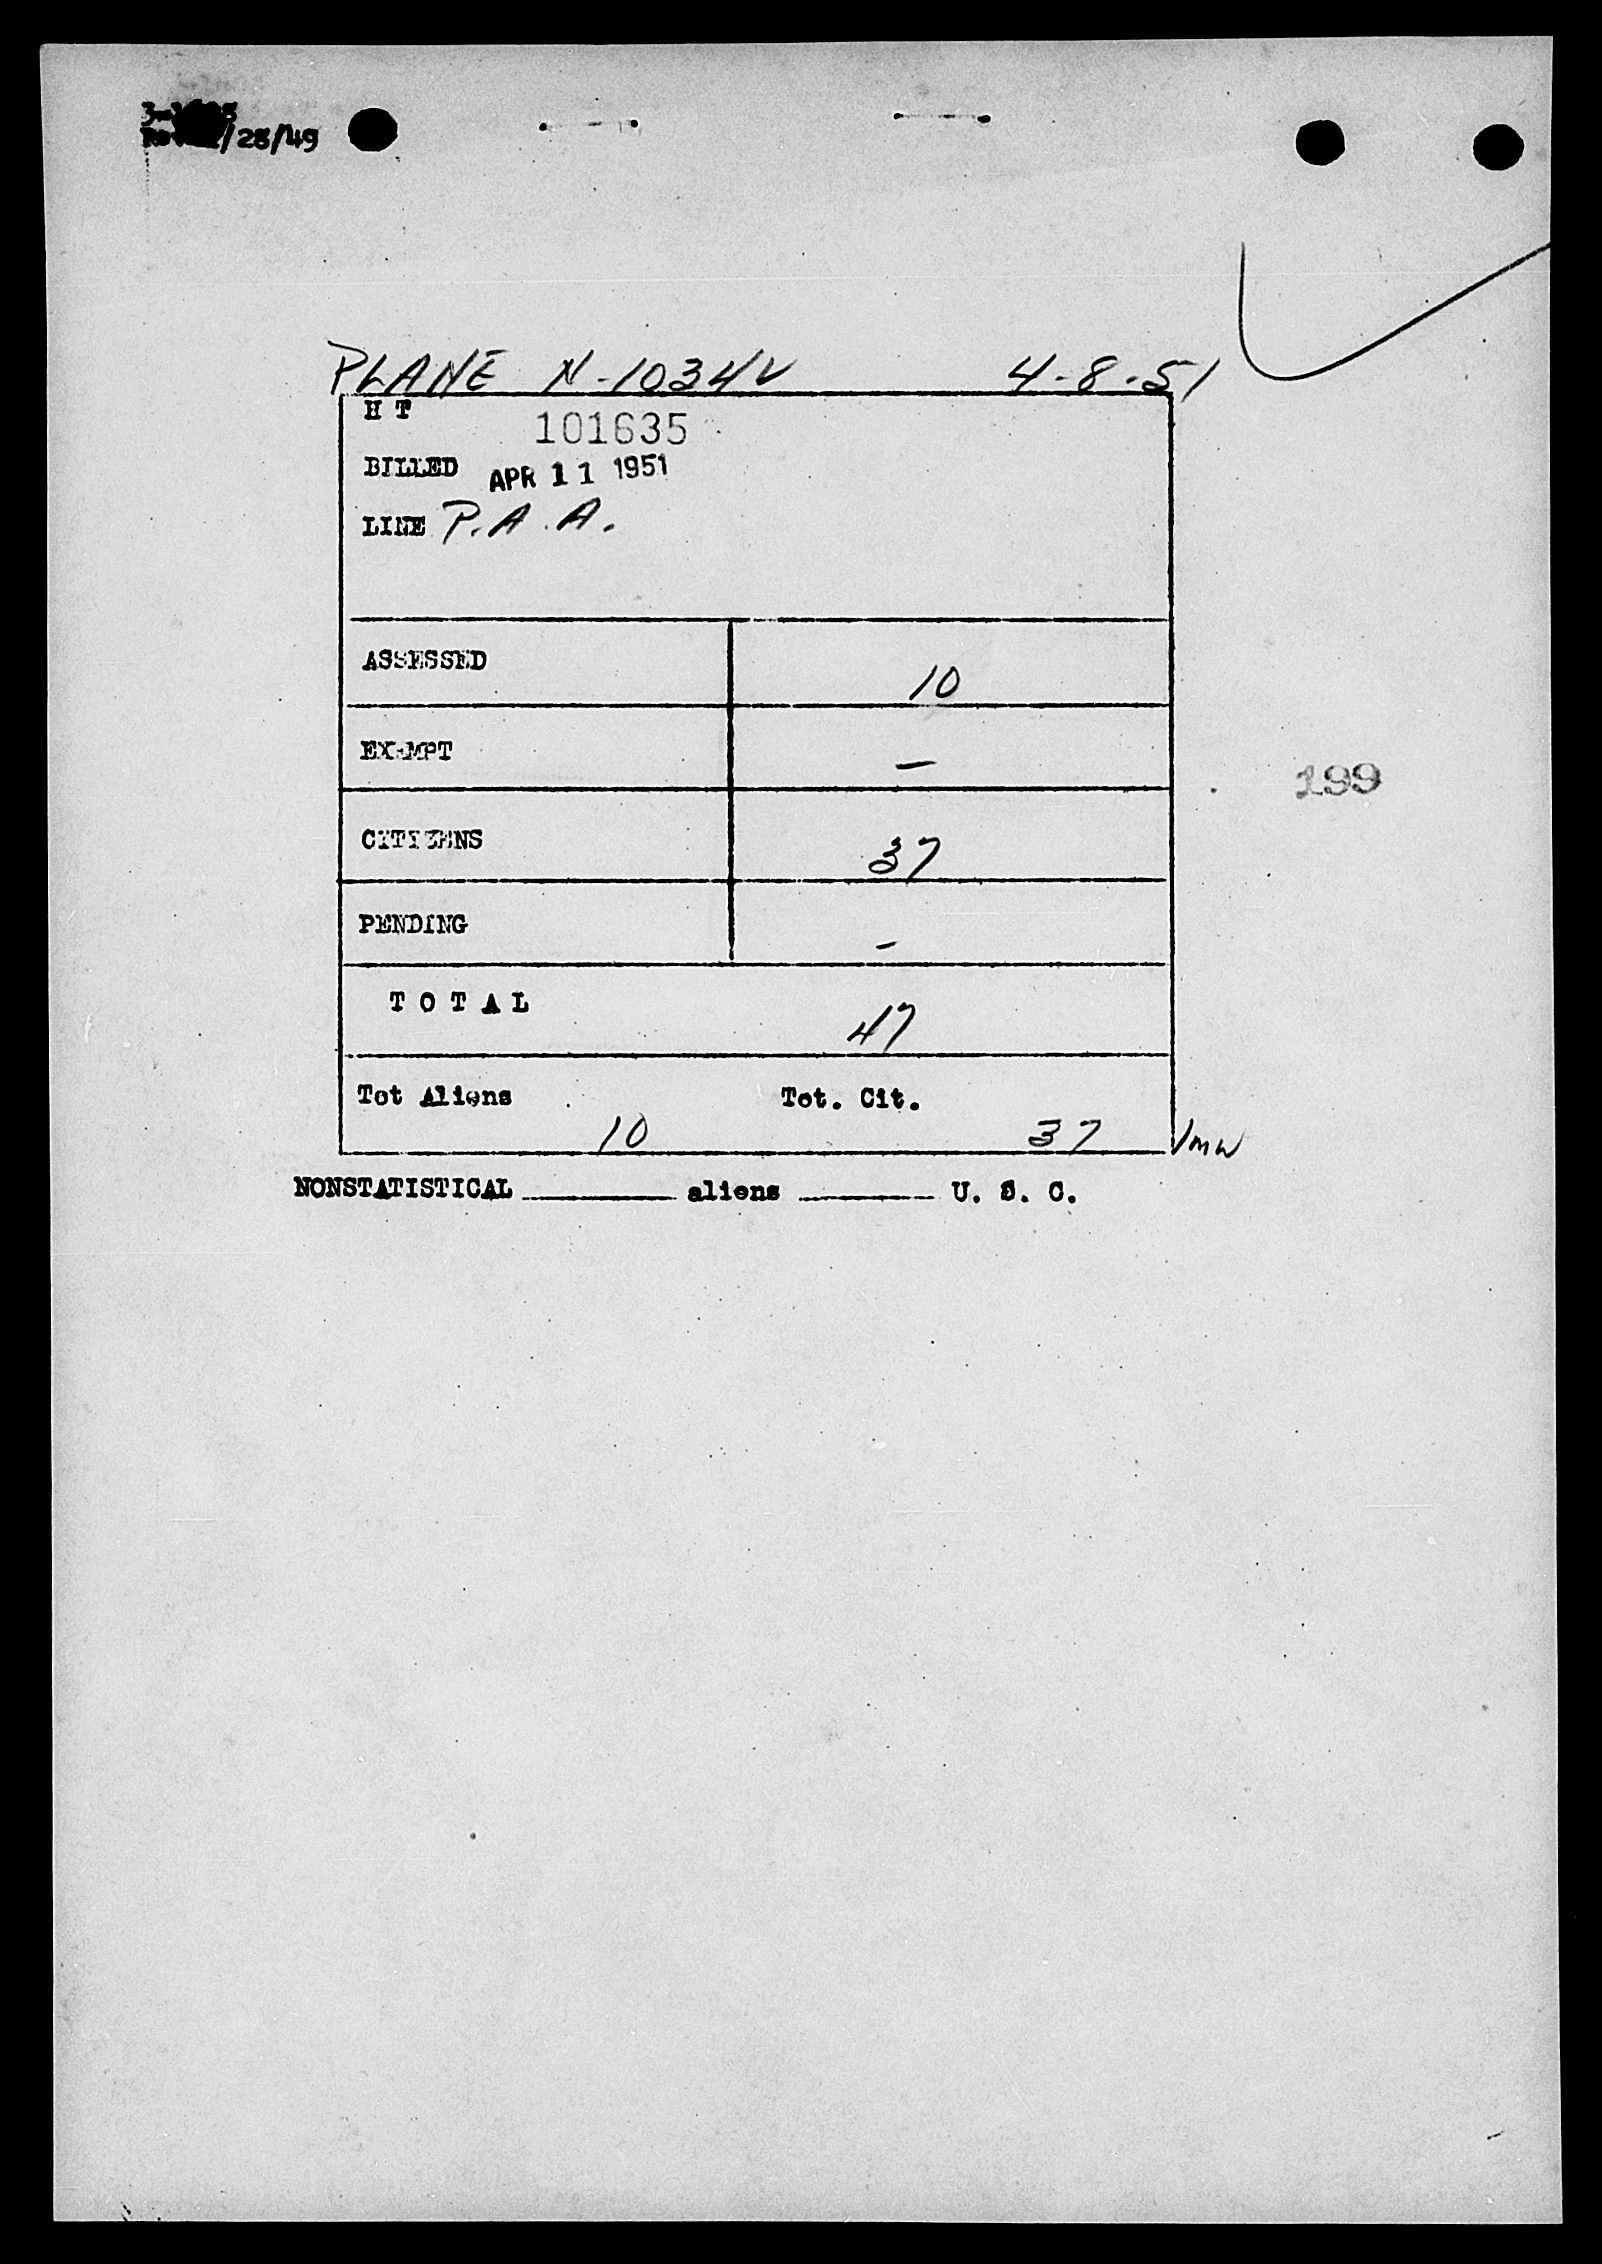 /28/49
PLANE N-1034V 4-8-51
H T 101635
BILLED APR 11 1951
LINE P.A.A.
ASSESSED 10
EXEMPT -
199
CITIZENS 37
PENDING -
T O T A L 47
Tot Aliens Tot. Cit.
10 37 /mw
NONSTATISTICAL ________ aliens ________ U. S. C.